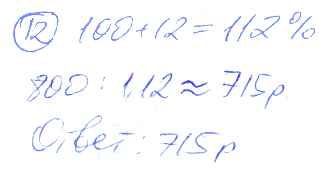 12 100+12=112%
800:1,12≈715р
Ответ: 715р